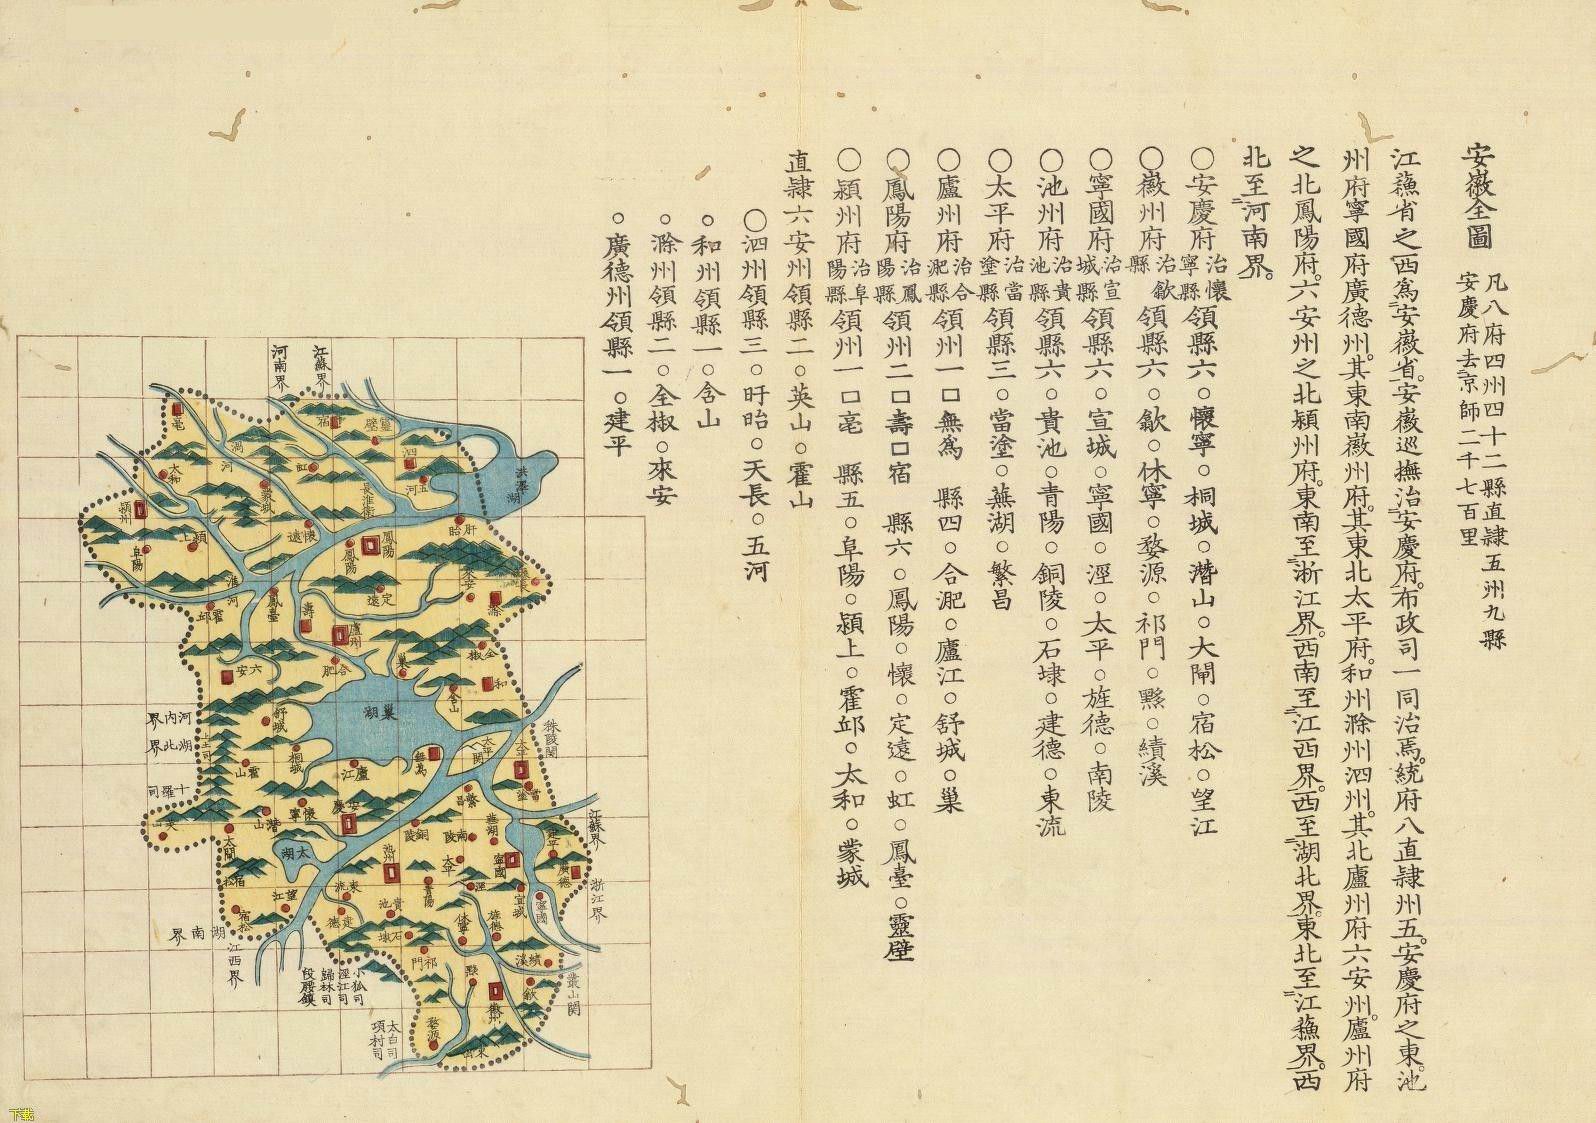 安徽全圖
凡八府四州四十二縣直隸五州九縣
安慶府去京師二千七百里
江蘓省之西爲安徽省。安徽巡撫治安慶府。布政司一同治焉。統府八直隸州五。安慶府之東。池
州府寧國府廣德州。其東南徽州府。其東北太平府。和州滁州泗州。其北廬州府六安州。廬州府
之北鳳陽府。六安州之北潁州府。東南至浙江界。西南至江西界。西至湖北界。東北至江蘓界。西
北至河南界。
○安慶府治懷寧縣領縣六○懷寧○桐城○潛山○大閘○宿松○望江
○徽州府治歙縣領縣六○歙○休寧○婺源○祁門○黟○績溪
○寧國府治宣城縣領縣六○宣城○寧國○涇○太平○旌德○南陵
○池州府治貴池縣領縣六○貴池○青陽○銅陵○石埭○建德○東流
○太平府治當塗縣領縣三○當塗○蕪湖○繁昌
○廬州府治合淝縣領州一□無爲 縣四○合淝○廬江○舒城○巢
○鳳陽府治鳳陽縣領州二□壽□宿 縣六○鳳陽○懷○定遠○虹○鳳臺○靈壁
○潁州府治阜陽縣領州一□亳 縣五○阜陽○潁上○霍邱○太和○蒙城
直隸六安州領縣二○英山○霍山
○泗州領縣三○盱眙○天長○五河
○和州領縣一○含山
○滁州領縣二○全椒○來安
○廣德州領縣一○建平
江蘇界
河南界
亳
宿
靈壁
渦河
虹
泗
五河
洪澤湖
太和
蒙城
長淮衛
潁州
潁上
懷遠
盱眙
阜陽
鳳陽
鳳陽
來安
淮河
鳳臺
定遠
滁
霍邱
壽
廬州
合肥
巢
全椒
六安
和
含山
巢湖
舒城
河內界
湖北界
上土司
秣陵關
太平關
太平
桐城
無爲
霍山
廬江
十羅司
繁昌
當塗
懷寧
安慶
潛山
英山
太閘
太湖
銅陵
南陵
蕪湖
建平
江蘇界
池州
太平
寧國
廣德
宿松
東流
青陽
涇
宣城
浙江界
望江
貴池
寧國
宿松
建德
石埭
休寧
旌德
湖南界
江西界
祁門
績溪
小孤司
涇江司
歸林司
段腰鎮
黟
徽州
歙
叢山關
太白司
項村司
婺源
下载